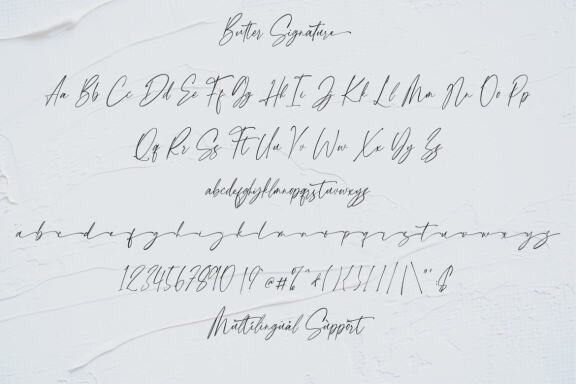 Butter Signature
Aa Bb Cc Dd Ee Ff Gg Hh Ii Jj Kk Ll Mm Nn Oo Pp
Qq Rr Ss Tt Uu Vv Ww Xx Yy Zz
abcdefghijklmnopqrstuvwxyz
a b c d e f g h i j k l m n o p q r s t u v w x y z
Multilingual Support